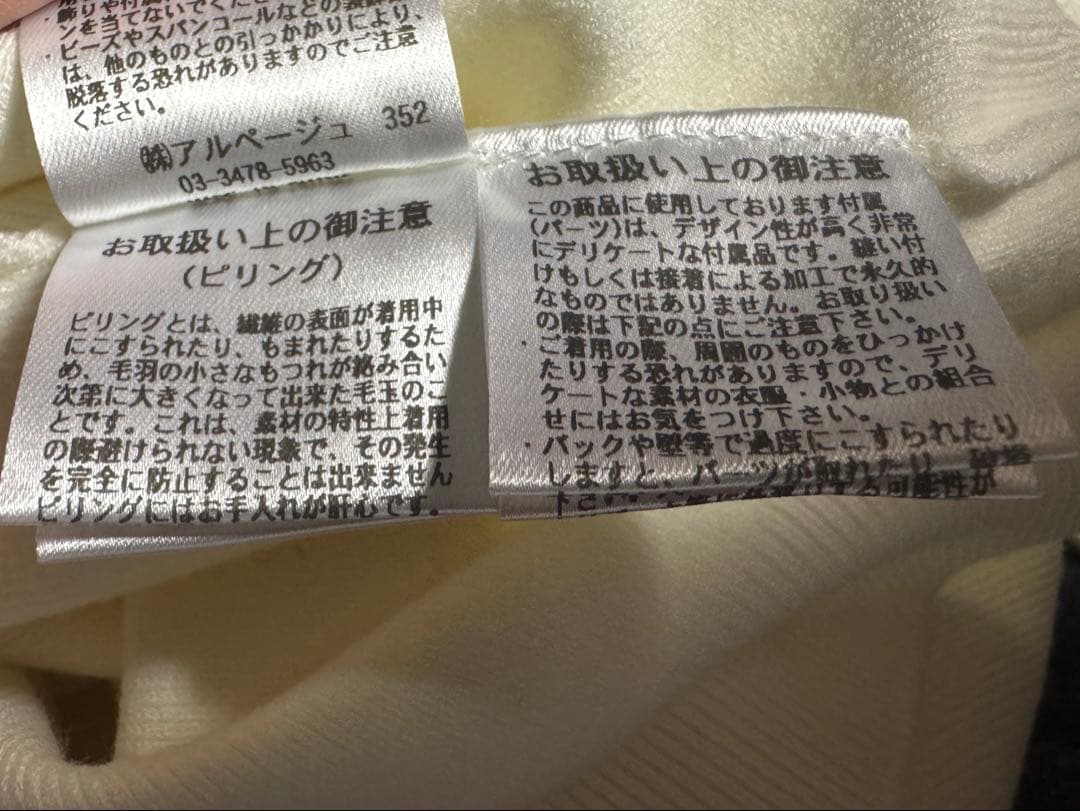 飾りや付属
ンを当てないでくだ
・ビーズやスパンコールなどの装飾
は、他のものとの引っかかりにより、
脱落する恐れがありますのでご注意
ください。
㈱アルページュ 352
03-3478-5963
お取扱い上の御注意
(ピリング)
ピリングとは、繊維の表面が着用中
にこすられたり、もまれたりするた
め、毛羽の小さなもつれが絡み合い
次第に大きくなって出来た毛玉のこ
とです。これは、素材の特性上着用
の際避けられない現象で、その発生
を完全に防止することは出来ません
ピリングにはお手入れが肝心です。
お取扱い上の御注意
この商品に使用しております付属
(パーツ)は、デザイン性が高く非常
にデリケートな付属品です。縫い付
けもしくは接着による加工で永久的
なものではありません。お取り扱い
の際は下記の点にご注意下さい。
・ご着用の際、周囲のものをひっかけ
たりする恐れがありますので、デリ
ケートな素材の衣服・小物との組合
せにはお気をつけ下さい。
・バックや壁等で過度にこすられたり
しますと、パーツが取れたり、破落
る可能性が